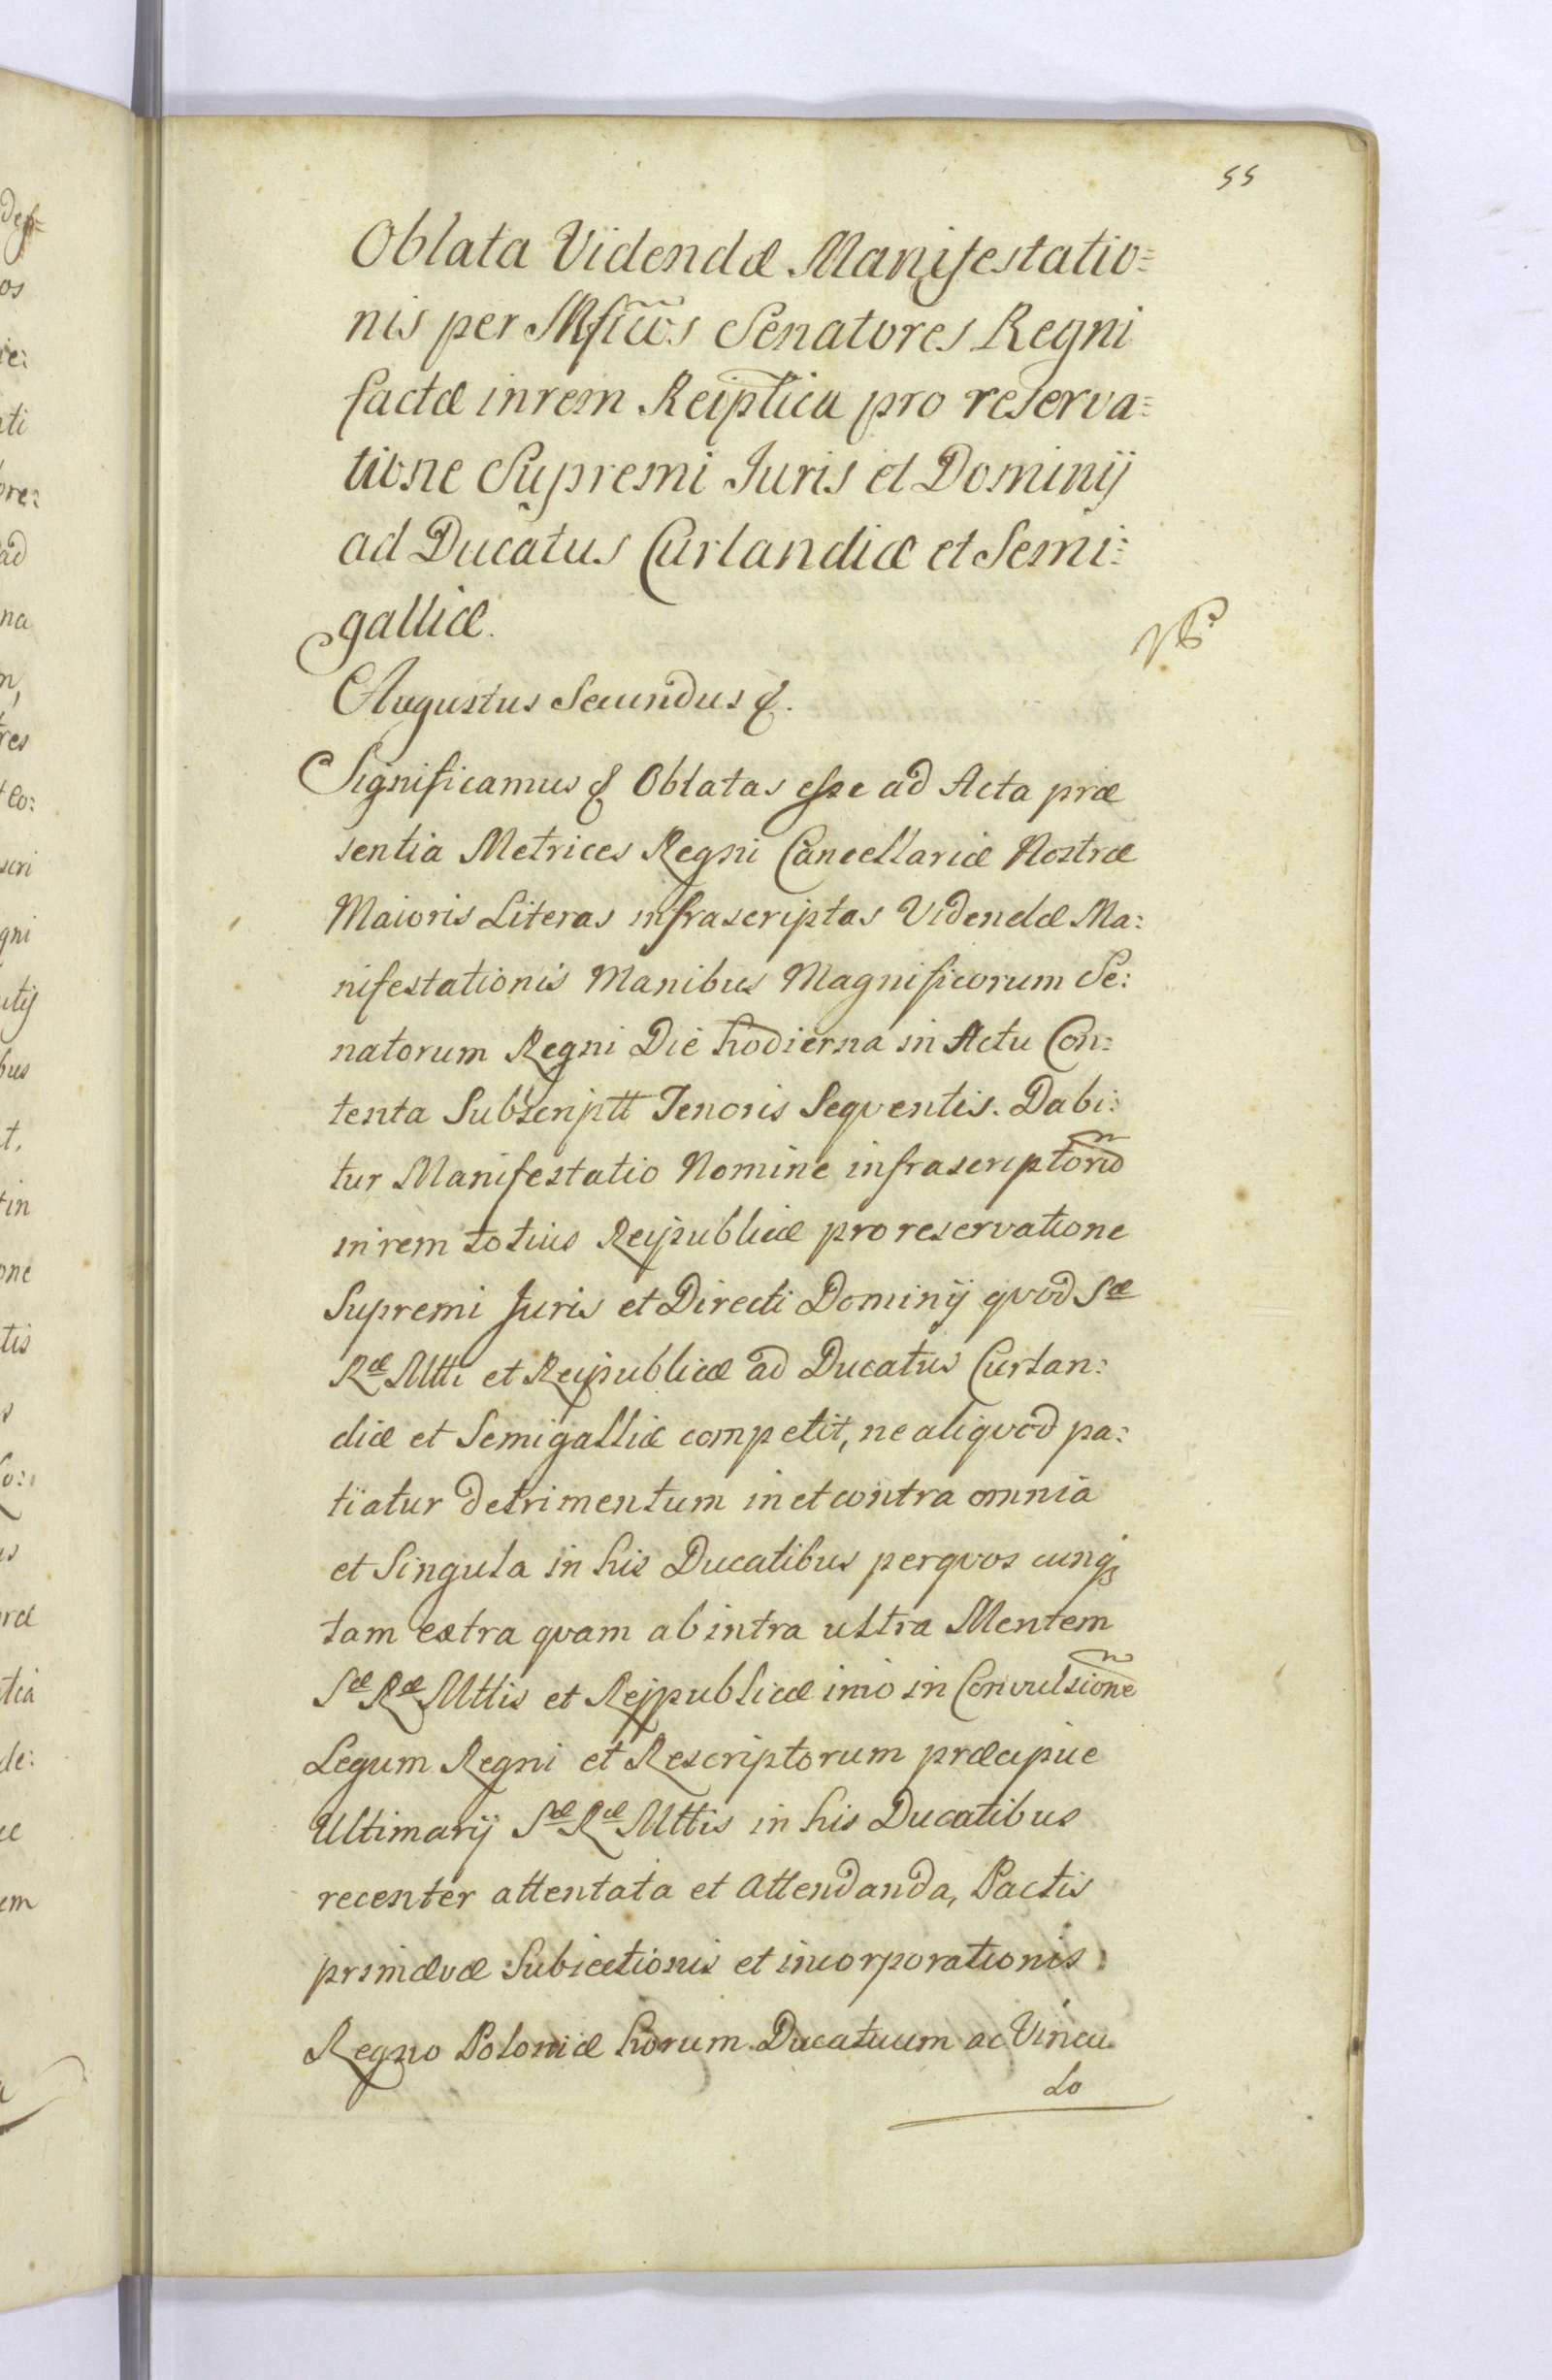 55
Oblata Videndæ Manifestatio=
nis per Mficos Senatores Regni
factæ in rem Reiplicæ pro reserva=
tione Supremi Juris et Dominij
ad Ducatus Curlandiæ et Semi=
galliæ.
Augustus Secundus &.
Significamus & Oblatas esse ad Acta præ
sentia Metrices Regni Cancellariæ Nostræ
Maioris Literas infrascriptas Videndæ Ma:
nifestationis Manibus Magnificorum Se:
natorum Regni Die hodierna in Actu Con:
tenta Subscriptt Tenoris Seqventis. Dabi:
tur Manifestatio Nomine infrascriptorū
in rem totius Reipublicæ pro reservatione
Supremi Juris et Directi Dominij qvod Sæ
Ræ Mtti et Reipublicæ ad Ducatus Curlan:
diæ et Semigalliæ competit, ne aliqvod pa:
tiatur detrimentum in et contra omnia
et Singula in his Ducatibus per qvos cunqꝫ
tam extra qvam ab intra ultra Mentem
Sæ Ræ Mttis et Reipublicæ imo in Convulsionē
Legum Regni et Rescriptorum præcipue
Ultimarij Sæ Ræ Mttis in his Ducatibus
recenter attentata et attendanda, Pactis
primævæ Subiectionis et incorporationis
Regno Poloniæ horum Ducatuum ac Vincu
lo